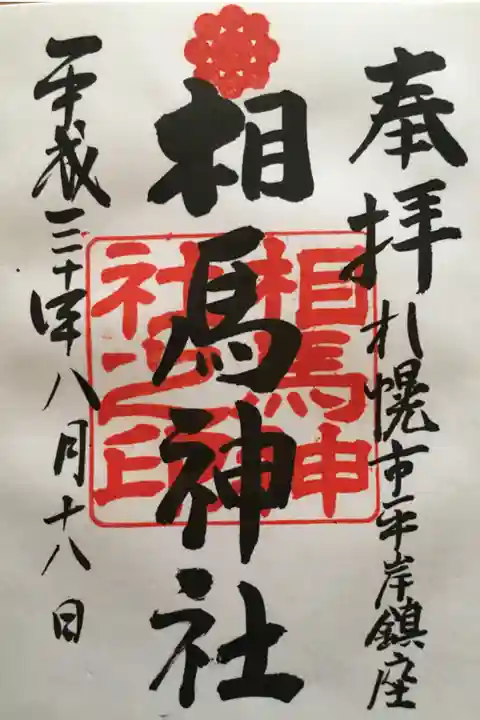 奉拝
札幌市平岸鎮座
相馬神社
相馬神
社之印
平成三十年八月十八日